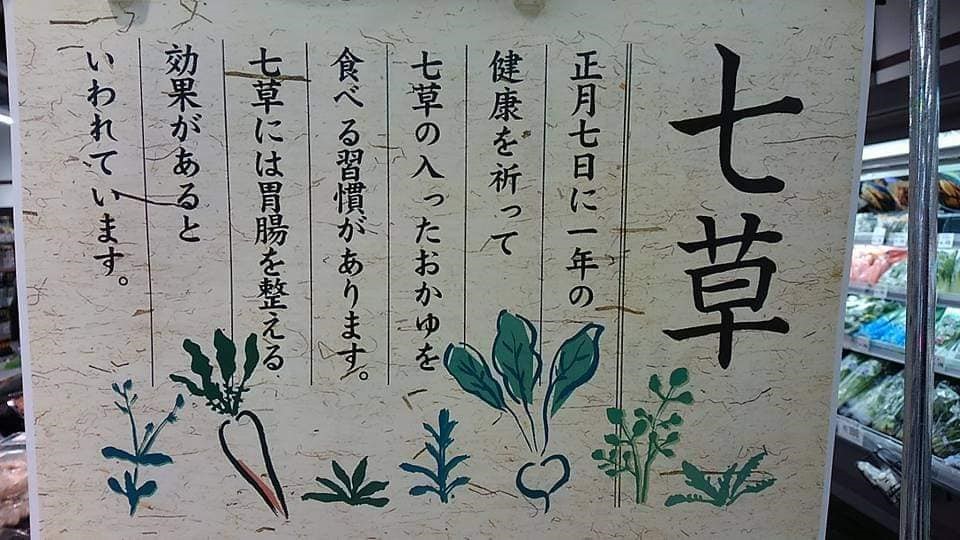 七草
正月七日に一年の
健康を祈って
七草の入ったおかゆを
食べる習慣があります。
七草には胃腸を整える
効果があると
いわれています。